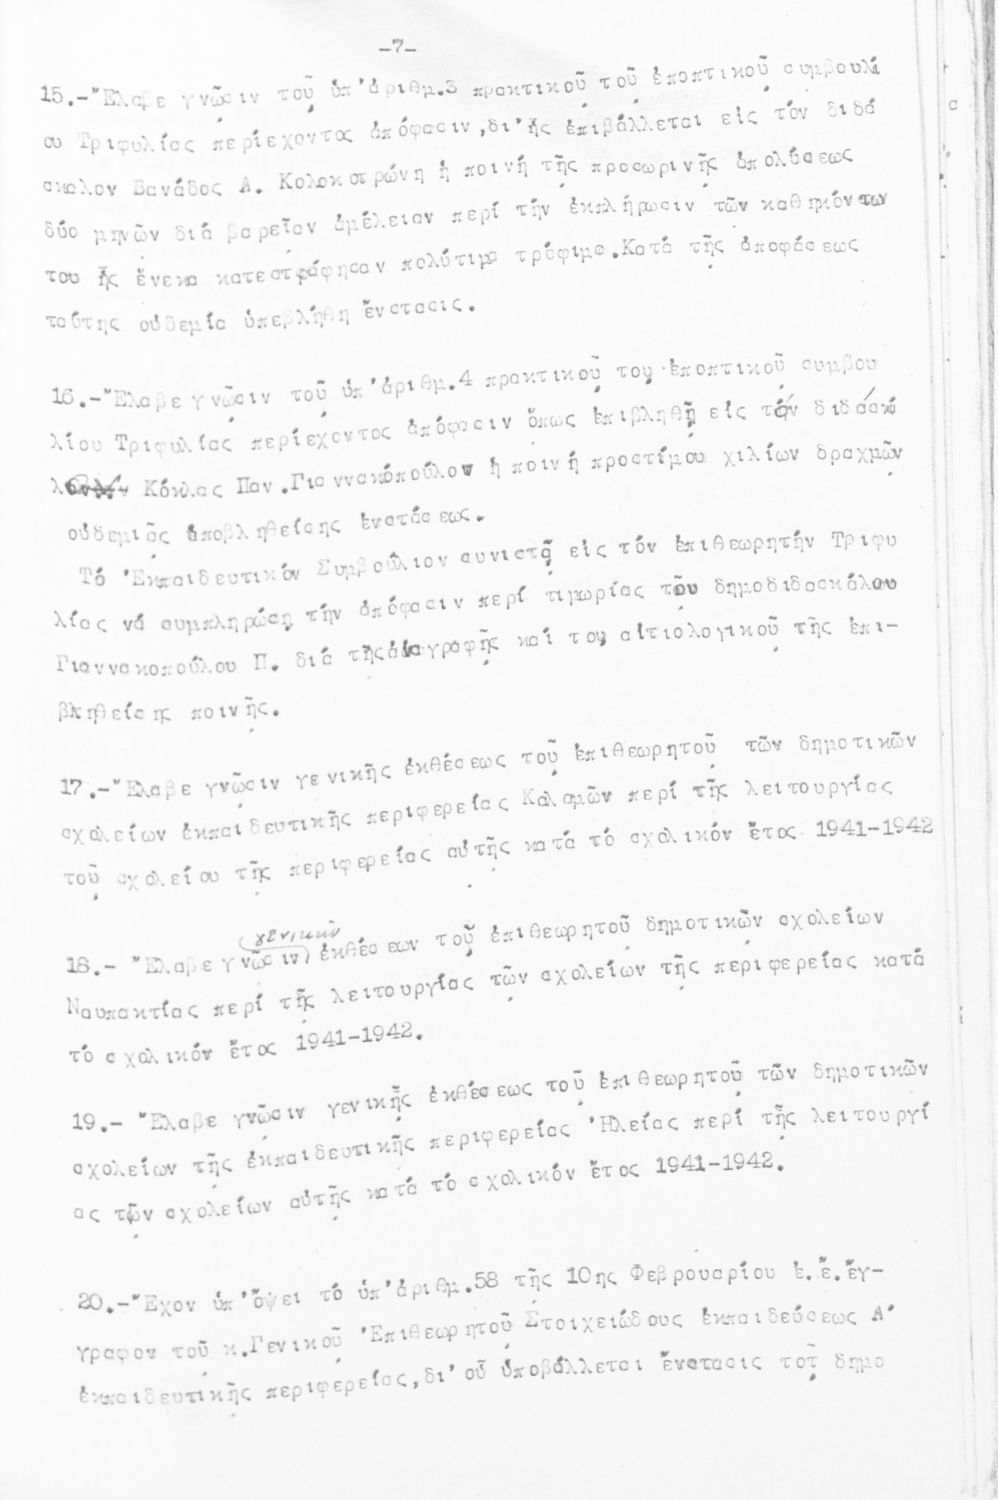 -7-
15.-"Ελαβε γνῶσιν τοῦ ὑπ'ἀριθμ.3 πρακτικοῦ τοῦ ἐποπτικοῦ συμβουλί
ου Τριφυλίας περιέχοντος ἀπόφασιν,δι'ἧς ἐπιβάλλεται εἰς τόν διδά
σκαλον Βανάδος Α. Κολοκοτρώνη ἡ ποινή τῆς προσωρινῆς ἀπολύσεως
δύο μηνῶν διά βαρεῖαν ἀμέλειαν περί τήν ἐκπλήρωσιν τῶν καθηκόντων
του ἧς ἕνεκα κατεστράφησαν πολύτιμα τρόφιμα.Κατά τῆς ἀποφάσεως
ταύτης οὐδεμία ὑπεβλήθη ἔνστασις.
16.-"Ελαβε γνῶσιν τοῦ ὑπ'ἀριθμ.4 πρακτικοῦ του ἐποπτικοῦ συμβου
λίου Τριφυλίας περιέχοντος ἀπόφασιν ὅπως ἐπιβληθῇ εἰς τόν διδάσκα
λον Κόκλας Παν.Γιαννακόπουλον ἡ ποινή προστίμου χιλίων δραχμῶν
οὐδεμιᾶς ἀποβληθείσης ἐνστάσεως.
Τό 'Εκπαιδευτικόν Συμβούλιον συνιστᾷ εἰς τόν ἐπιθεωρητήν Τριφυ
λίας νά συμπληρώσῃ τήν ἀπόφασιν περί τιμωρίας τοῦ δημοδιδασκάλου
Γιαννακοπούλου Π. διά τῆς ἀναγραφῆς καί του αἰτιολογικοῦ τῆς ἐπι-
βληθείσης ποινῆς.
17.-"Ελαβε γνῶσιν γενικῆς ἐκθέσεως τοῦ ἐπιθεωρητοῦ τῶν δημοτικῶν
σχολείων ἐκπαιδευτικῆς περιφερείας Καλαμῶν περί τῆς λειτουργίας
τοῦ σχολείου τῆς περιφερείας αὐτῆς κατά τό σχολικόν ἔτος 1941-1942
γενικῶν
18.- "Ελαβε γνῶσιν ἐκθέσεων τοῦ ἐπιθεωρητοῦ δημοτικῶν σχολείων
Ναυπακτίας περί τῆς λειτουργίας τῶν σχολείων τῆς περιφερείας κατά
τό σχολικόν ἔτος 1941-1942.
19.- "Ελαβε γνῶσιν γενικῆς ἐκθέσεως τοῦ ἐπιθεωρητοῦ τῶν δημοτικῶν
σχολείων τῆς ἐκπαιδευτικῆς περιφερείας 'Ηλείας περί τῆς λειτουργί
ας τῶν σχολείων αὐτῆς κατά τό σχολικόν ἔτος 1941-1942.
20.-"Εχον ὑπ'ὄψει τό ὑπ'ἀριθμ.58 τῆς 10ης Φεβρουαρίου ἐ.ἔ.ἔγ-
γραφον τοῦ κ.Γενικοῦ 'Επιθεωρητοῦ Στοιχειώδους ἐκπαιδεύσεως Α'
ἐκπαιδευτικῆς περιφερείας,δι'οὗ ὑποβάλλεται ἔνστασις τοῦ δημο